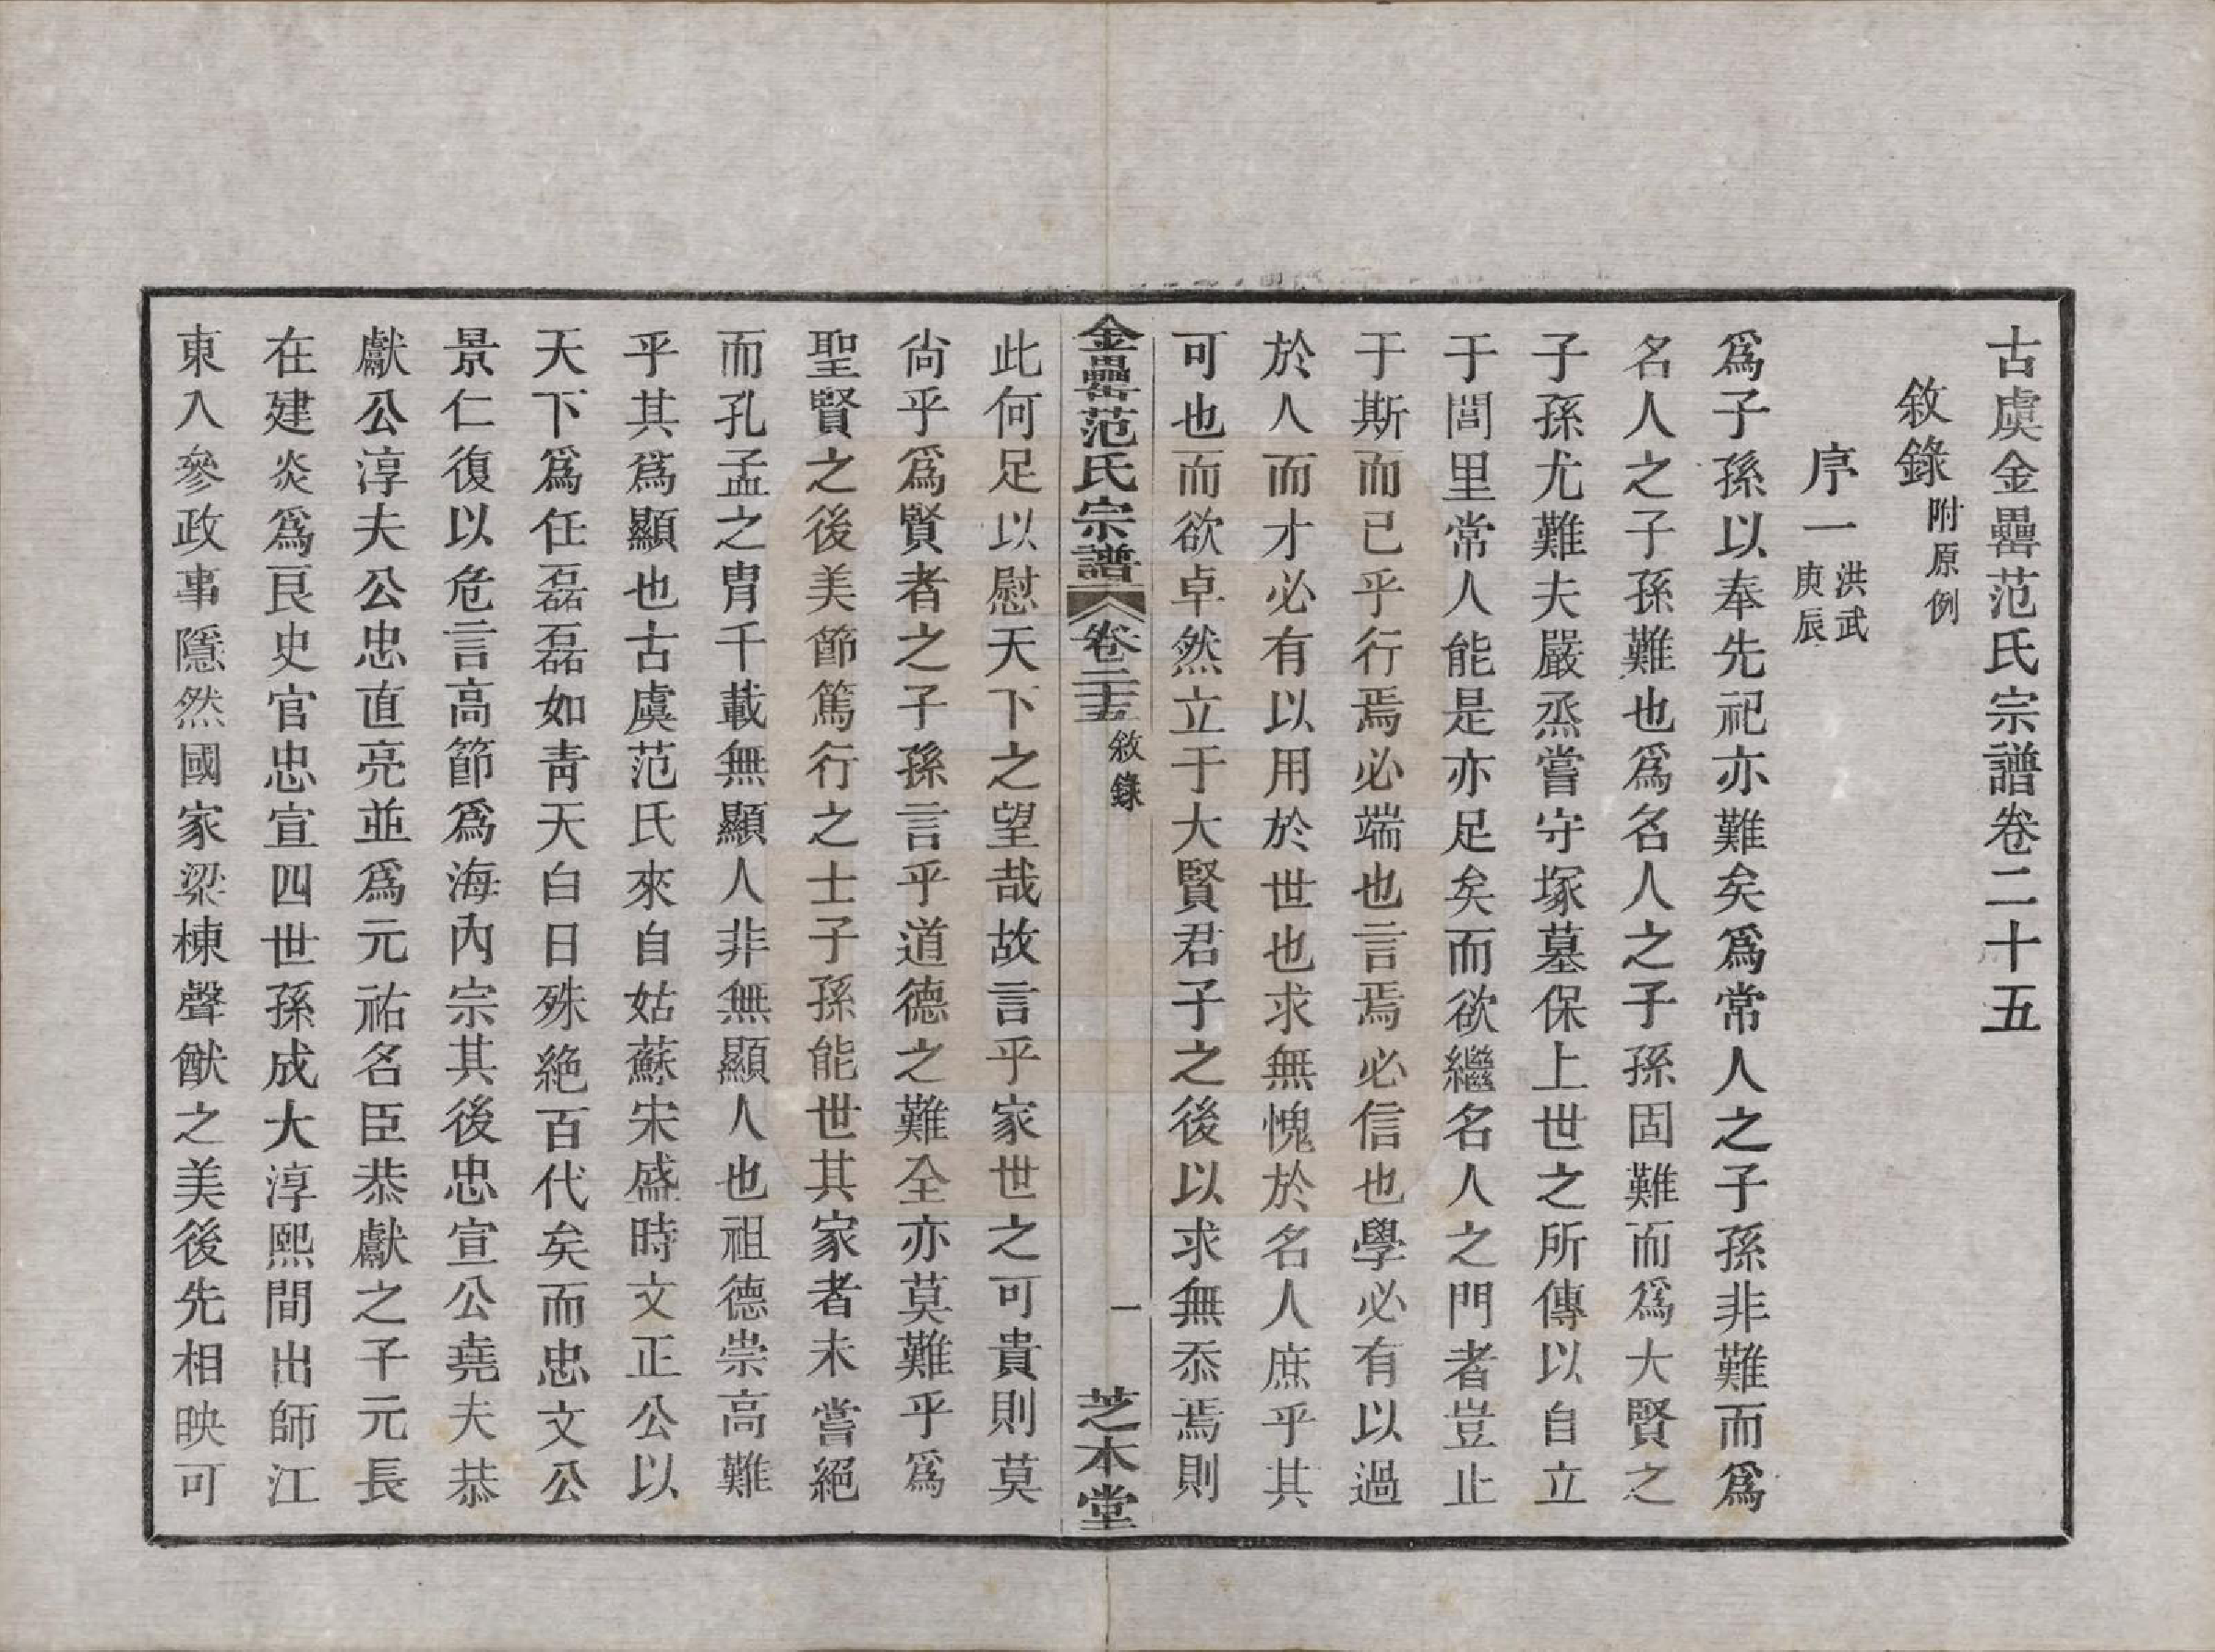 古虞金罍范氏宗譜卷二十五
敘錄附原例
序一洪武庚辰
爲子孫以奉先祀亦難矣爲常人之子孫非難而爲
名人之子孫難也爲名人之子孫固難而爲大賢之
子孫尤難夫嚴烝嘗守塚墓保上世之所傳以自立
于閭里常人能是亦足矣而欲繼名人之門者豈止
于斯而已乎行焉必端也言焉必信也學必有以過
於人而才必有以用於世也求無愧於名人庶乎其
可也而欲卓然立于大賢君子之後以求無忝焉則
金罍范氏宗譜 卷二十五 敘錄 一 芝本堂
此何足以慰天下之望哉故言乎家世之可貴則莫
尚乎爲賢者之子孫言乎道德之難全亦莫難乎爲
聖賢之後美節篤行之士子孫能世其家者未嘗絕
而孔孟之胄千載無顯人非無顯人也祖德崇高難
乎其爲顯也古虞范氏來自姑蘇宋盛時文正公以
天下爲任磊磊如靑天白日殊絶百代矣而忠文公
景仁復以危言高節爲海內宗其後忠宣公堯夫恭
獻公淳夫公忠直亮並爲元祐名臣恭獻之子元長
在建炎爲良史官忠宣四世孫成大淳熙間出師江
東入參政事隱然國家梁棟聲猷之美後先相映可